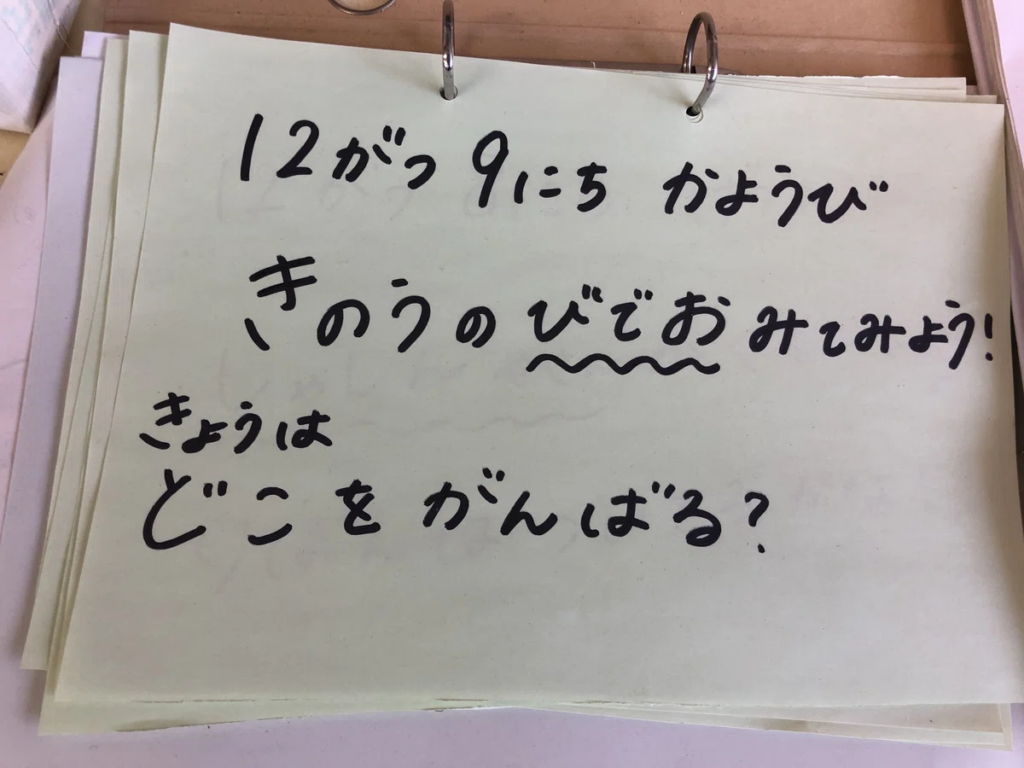 12がつ 9にち かようび
きのうのびでおみてみよう!
きょうは
どこをがんばる?